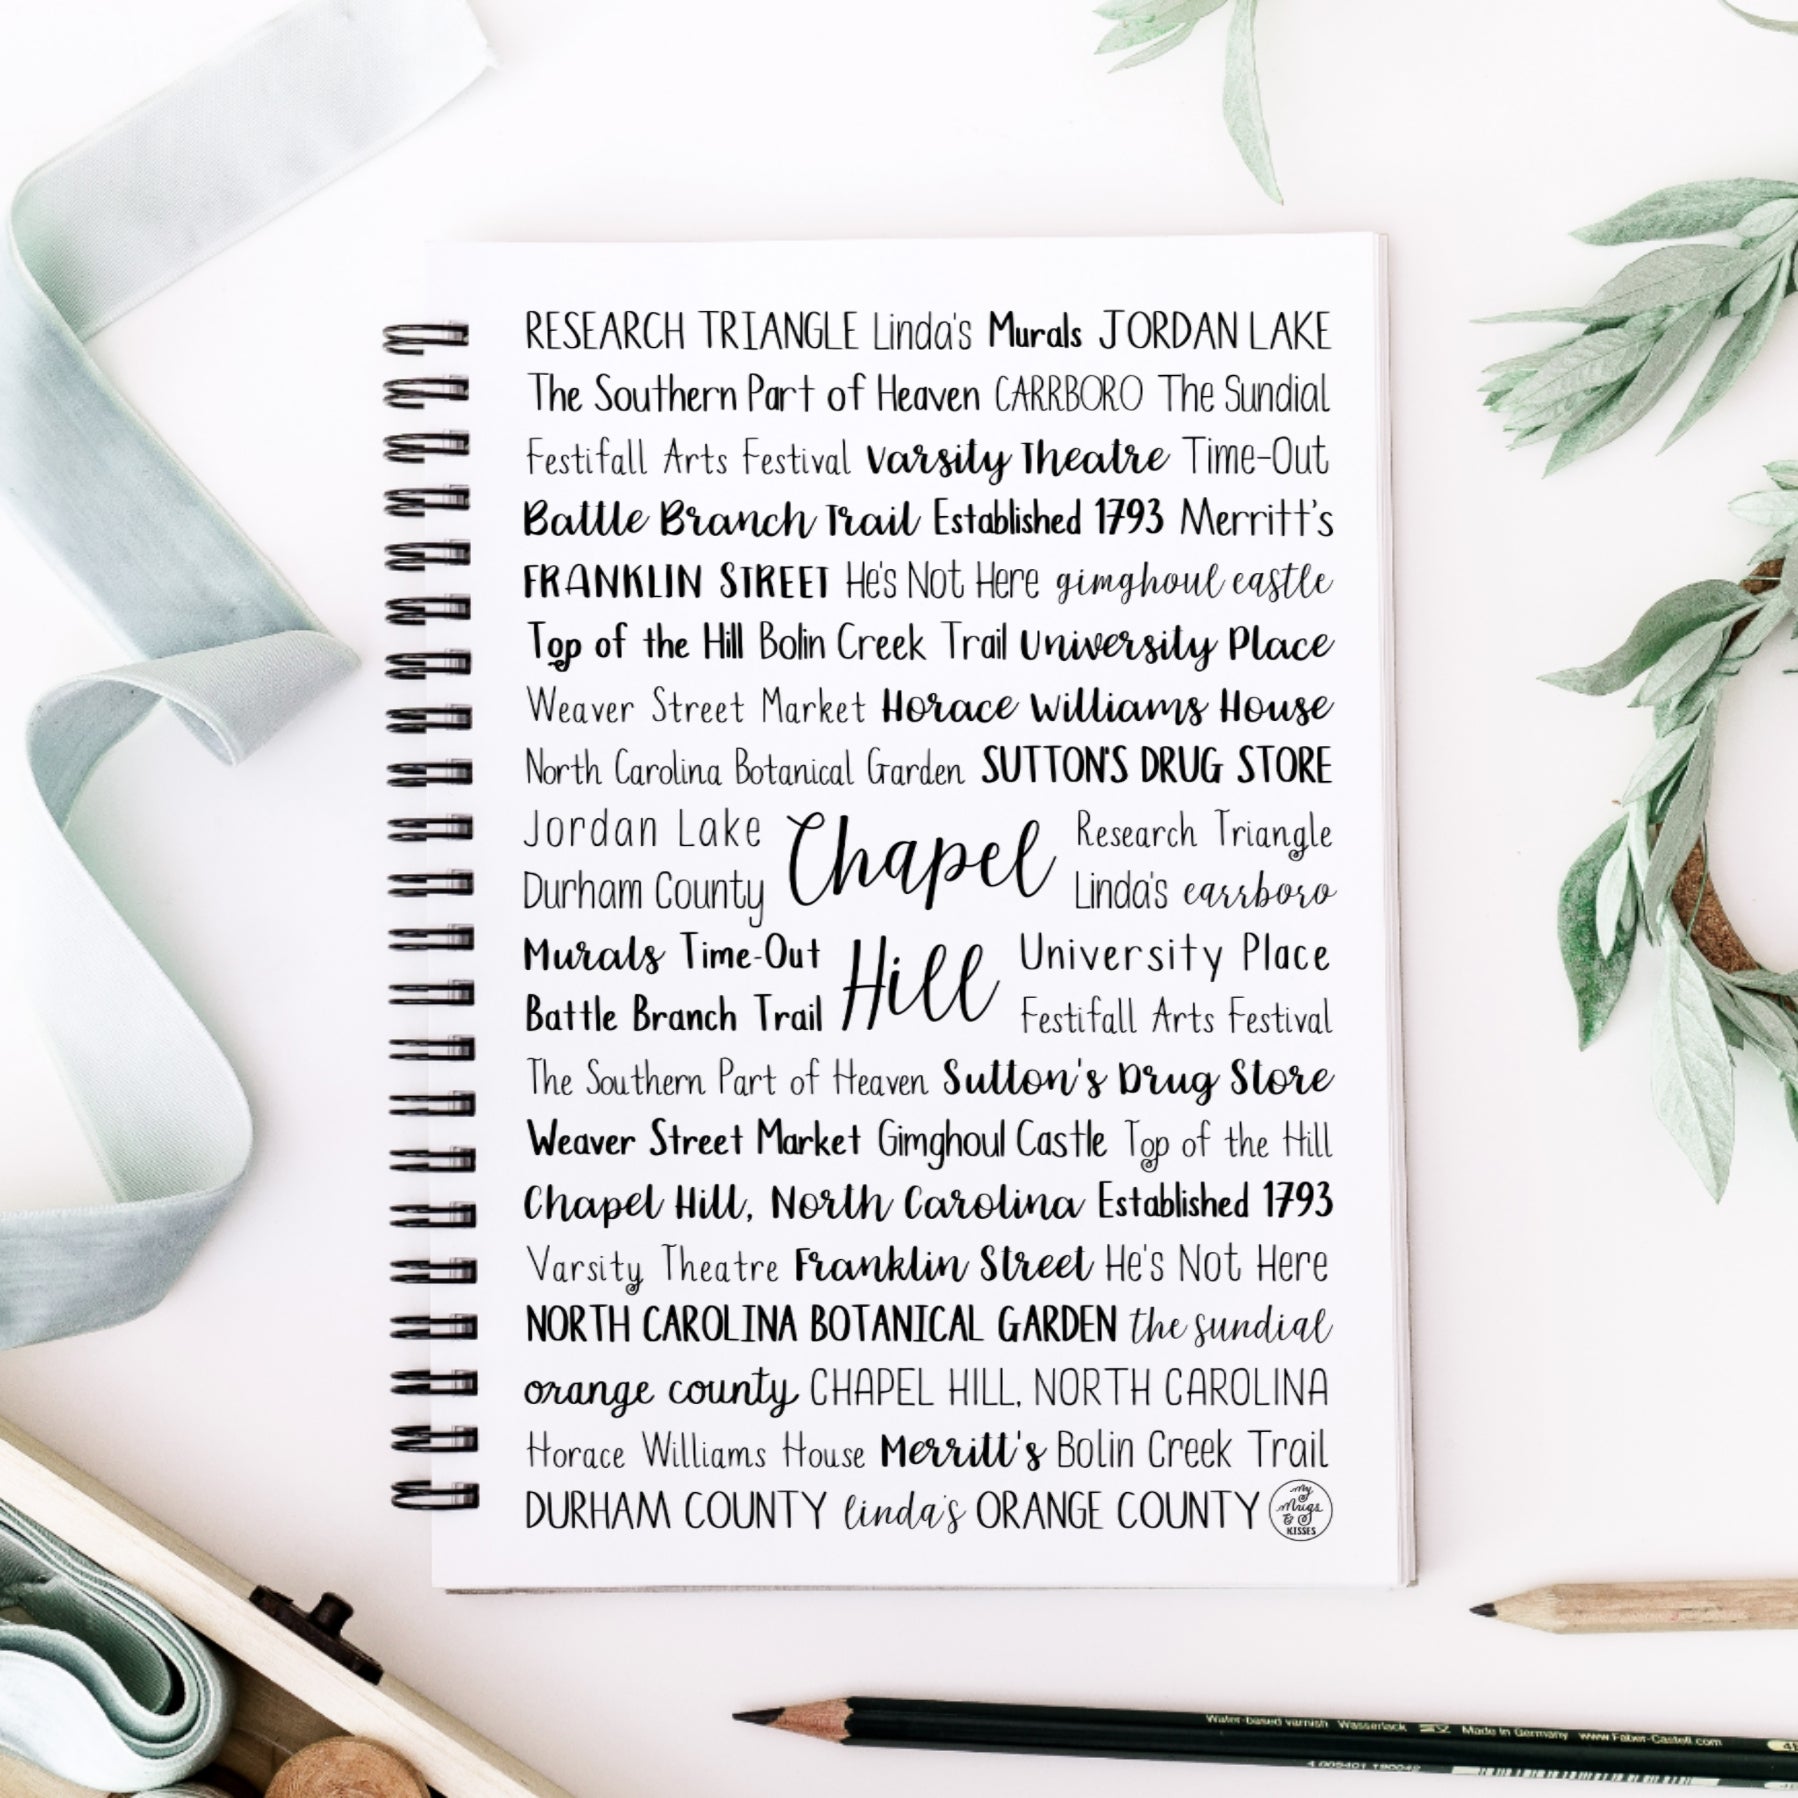 RESEARCH TRIANGLE Linda's Murals JORDAN LAKE
The Southern Part of Heaven CARRBORO The Sundial
Festifall Arts Festival Varsity Theatre Time-Out
Battle Branch Trail Established 1793 Merritt's
FRANKLIN STREET He's Not Here gimghoul castle
Top of the Hill Bolin Creek Trail University Place
Weaver Street Market Horace Williams House
North Carolina Botanical Garden SUTTON'S DRUG STORE
Jordan Lake Chapel Research Triangle
Durham County Linda's carrboro
Murals Time-Out Hill University Place
Battle Branch Trail Festifall Arts Festival
The Southern Part of Heaven Sutton's Drug Store
Weaver Street Market Gimghoul Castle Top of the Hill
Chapel Hill, North Carolina Established 1793
Varsity Theatre Franklin Street He's Not Here
NORTH CAROLINA BOTANICAL GARDEN the sundial
orange county CHAPEL HILL, NORTH CAROLINA
Horace Williams House Merritt's Bolin Creek Trail
DURHAM COUNTY linda's ORANGE COUNTY
My
Mugs
&
KISSES
Water-based varnish Wasserlack Made in Germany www.Faber-Castell.com